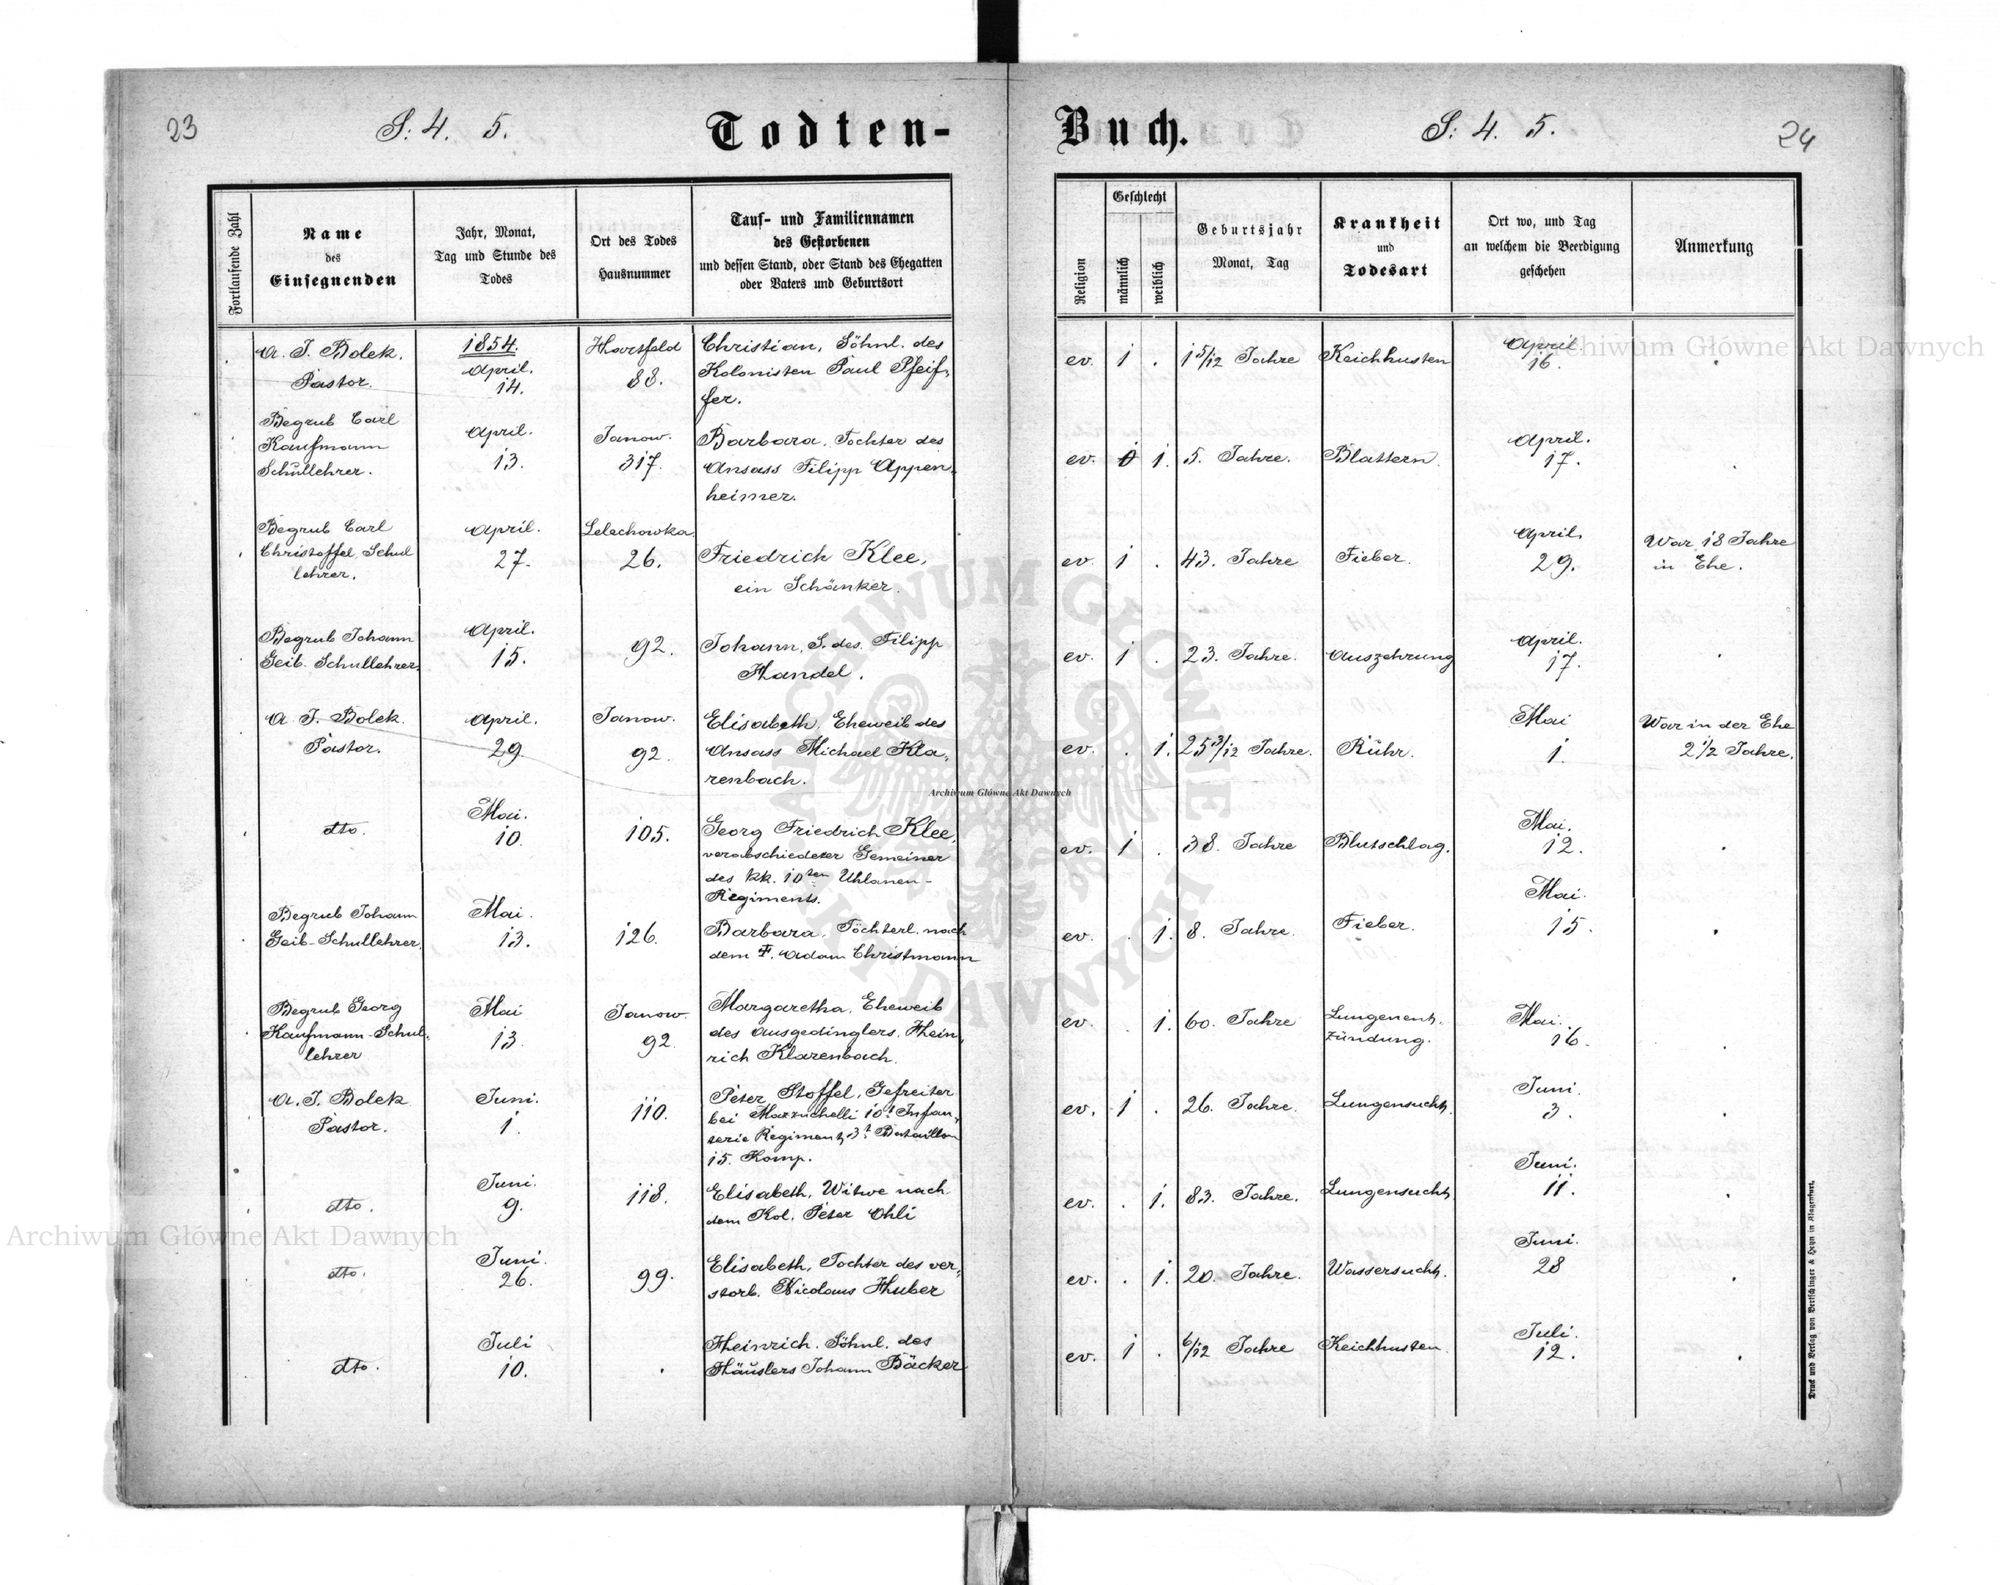 23
S: 4. 5.
Todten-
Buch.
S: 4. 5.
24
Fortlaufende Zahl
Name
des
Einsegnenden
Jahr, Monat,
Tag und Stunde des
Todes
Ort des Todes
Hausnummer
Tauf- und Familiennamen
des Gestorbenen
und dessen Stand, oder Stand des Ehegatten
oder Vaters und Geburtsort
Religion
Geschlecht
männlich
weiblich
Geburtsjahr
Monat, Tag
Krankheit
und
Todesart
Ort wo, und Tag
an welchem die Beerdigung
geschehen
Anmerkung
A. J. Bolek.
Pastor.
1854.
April.
14.
Hartfeld
88.
Christian, Söhnl. des
Kolonisten Paul Pfeif-
fer.
ev. 1 . 1 5/12 Jahre Keichhusten
April
16.
Begrub Carl
Kaufmann
Schullehrer.
April.
13.
Janow.
317.
Barbara, Tochter des
Ansass Filipp Appen-
heimer.
ev. 1. 5. Jahre. Blattern.
April.
17.
Begrub Carl
Christoffel, Schul
lehrer.
April.
27.
Lelechowka
26.
Friedrich Klee,
ein Schänker.
ev. 1 . 43. Jahre Fieber.
April.
29.
War 18 Jahre
in Ehe.
Begrub Johann
Geib. Schullehrer
April.
15.
92.
Johann, S. des Filipp
Handel.
ev. 1 . 23. Jahre. Auszehrung
April.
17.
A. J. Bolek.
Pastor.
April.
29.
Janow.
92.
Elisabeth, Eheweib des
Ansass Michael Kla-
renbach.
ev. . 1. 25 3/12 Jahre. Rühr.
Mai
1.
War in der Ehe
2 1/2 Jahre.
dto.
Mai.
10.
105.
Georg Friedrich Klee,
verabschiedeter Gemeiner
des kk. 10ten Uhlanen-
Regiments.
ev. 1 . 38. Jahre Blutschlag.
Mai.
12.
Begrub Johann
Geib-Schullehrer.
Mai.
13.
126.
Barbara, Töchterl. nach
dem †. Adam Christmann
ev. . 1. 8. Jahre. Fieber.
Mai.
15.
Begrub Georg
Kaufmann-Schul-
lehrer
Mai
13.
Janow.
92.
Margaretha, Eheweib
des Ausgedinglers, Hein-
rich Klarenbach.
ev. . 1. 60. Jahre Lungenent-
zündung.
Mai.
16.
A. J. Bolek
Pastor.
Juni.
1.
110.
Peter Stoffel, Gefreiter
bei Mazzuchelli 10t Infan-
terie Regiment, 3t Bataillon
15. Komp.
ev. 1 . 26. Jahre. Lungensucht.
Juni.
3.
dto.
Juni.
9.
118.
Elisabeth, Witwe nach
dem Kol. Peter Ohli
ev. . 1. 83. Jahre. Lungensucht.
Juni.
11.
dto.
Juni.
26.
99.
Elisabeth, Tochter des ver-
storb. Nicolaus Huber
ev. . 1. 20. Jahre. Wassersucht.
Juni.
28
dto.
Juli
10.
Heinrich. Söhnl. des
Häuslers Johann Bäcker
ev. 1 . 6/12 Jahre Keichhusten.
Juli.
12.
Druck und Verlag von Bertschinger & Heyn in Klagenfurt.
Archiwum Główne Akt Dawnych
Archiwum Główne Akt Dawnych
Archiwum Główne Akt Dawnych
ARCHIWUM GŁÓWNE AKT DAWNYCH